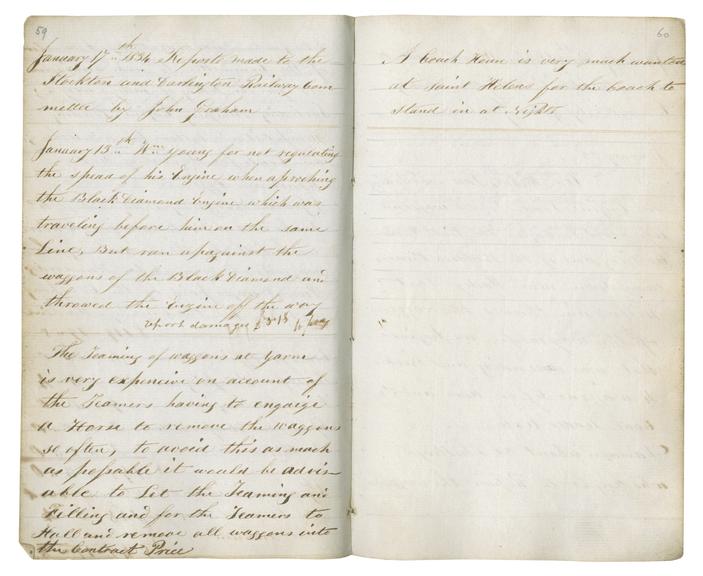 59
January 17th 1834 Reports made to the
Stockton and Darlington Railway Com
mettee by John Graham
January 13th Wm young for not regulating
the spead of his Engine when aproching
the Black Diamond Engine which was
traveling before him on the same
Line, But ran up against the
waggons of the Black Diamond and
throwed the Engine off the way
report damages £
The Teaming of waggons at Yarm
is very expencive on account of
the Teamers having to engaige
a Horse to remove the waggons
so often, to avoid this as much
as possable it would be advis
able to Let the Teaming and
Filling and for the Teamers to
Hall and remove all waggons into
the Contract Price
60
A Coach House is very much wanted
at Saint Helens for the Coach to
stand in at Nights